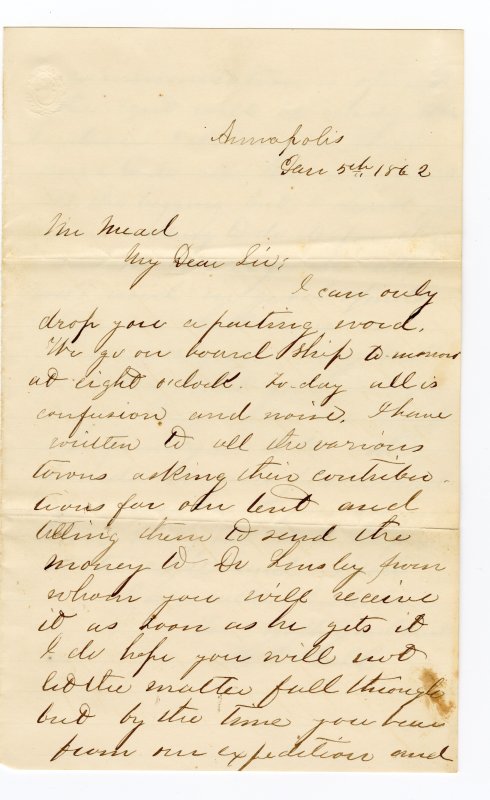 Annapolis
Jan 5th, 1862
Mr Mead
My Dear Sir:
I can only
drop you a parting word.
We go on board ship to-morrow
at eight o'clock. To-day all is
confusion and noise. I have
written to all the various
towns asking their contribu-
tions for our tent and
telling them to send the
money to Dr Linsley from
whom you will receive
it as soon as he gets it
I do hope you will not
let the matter fall through
but by the time you hear
from our expedition and